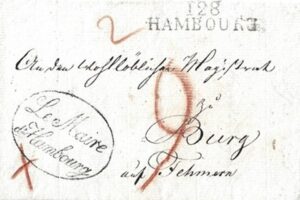 2
128
HAMBOURG
An den wohllöblichen Magistrat
zu
9
Burg
auf Fehmern
Le Maire
Hambourg